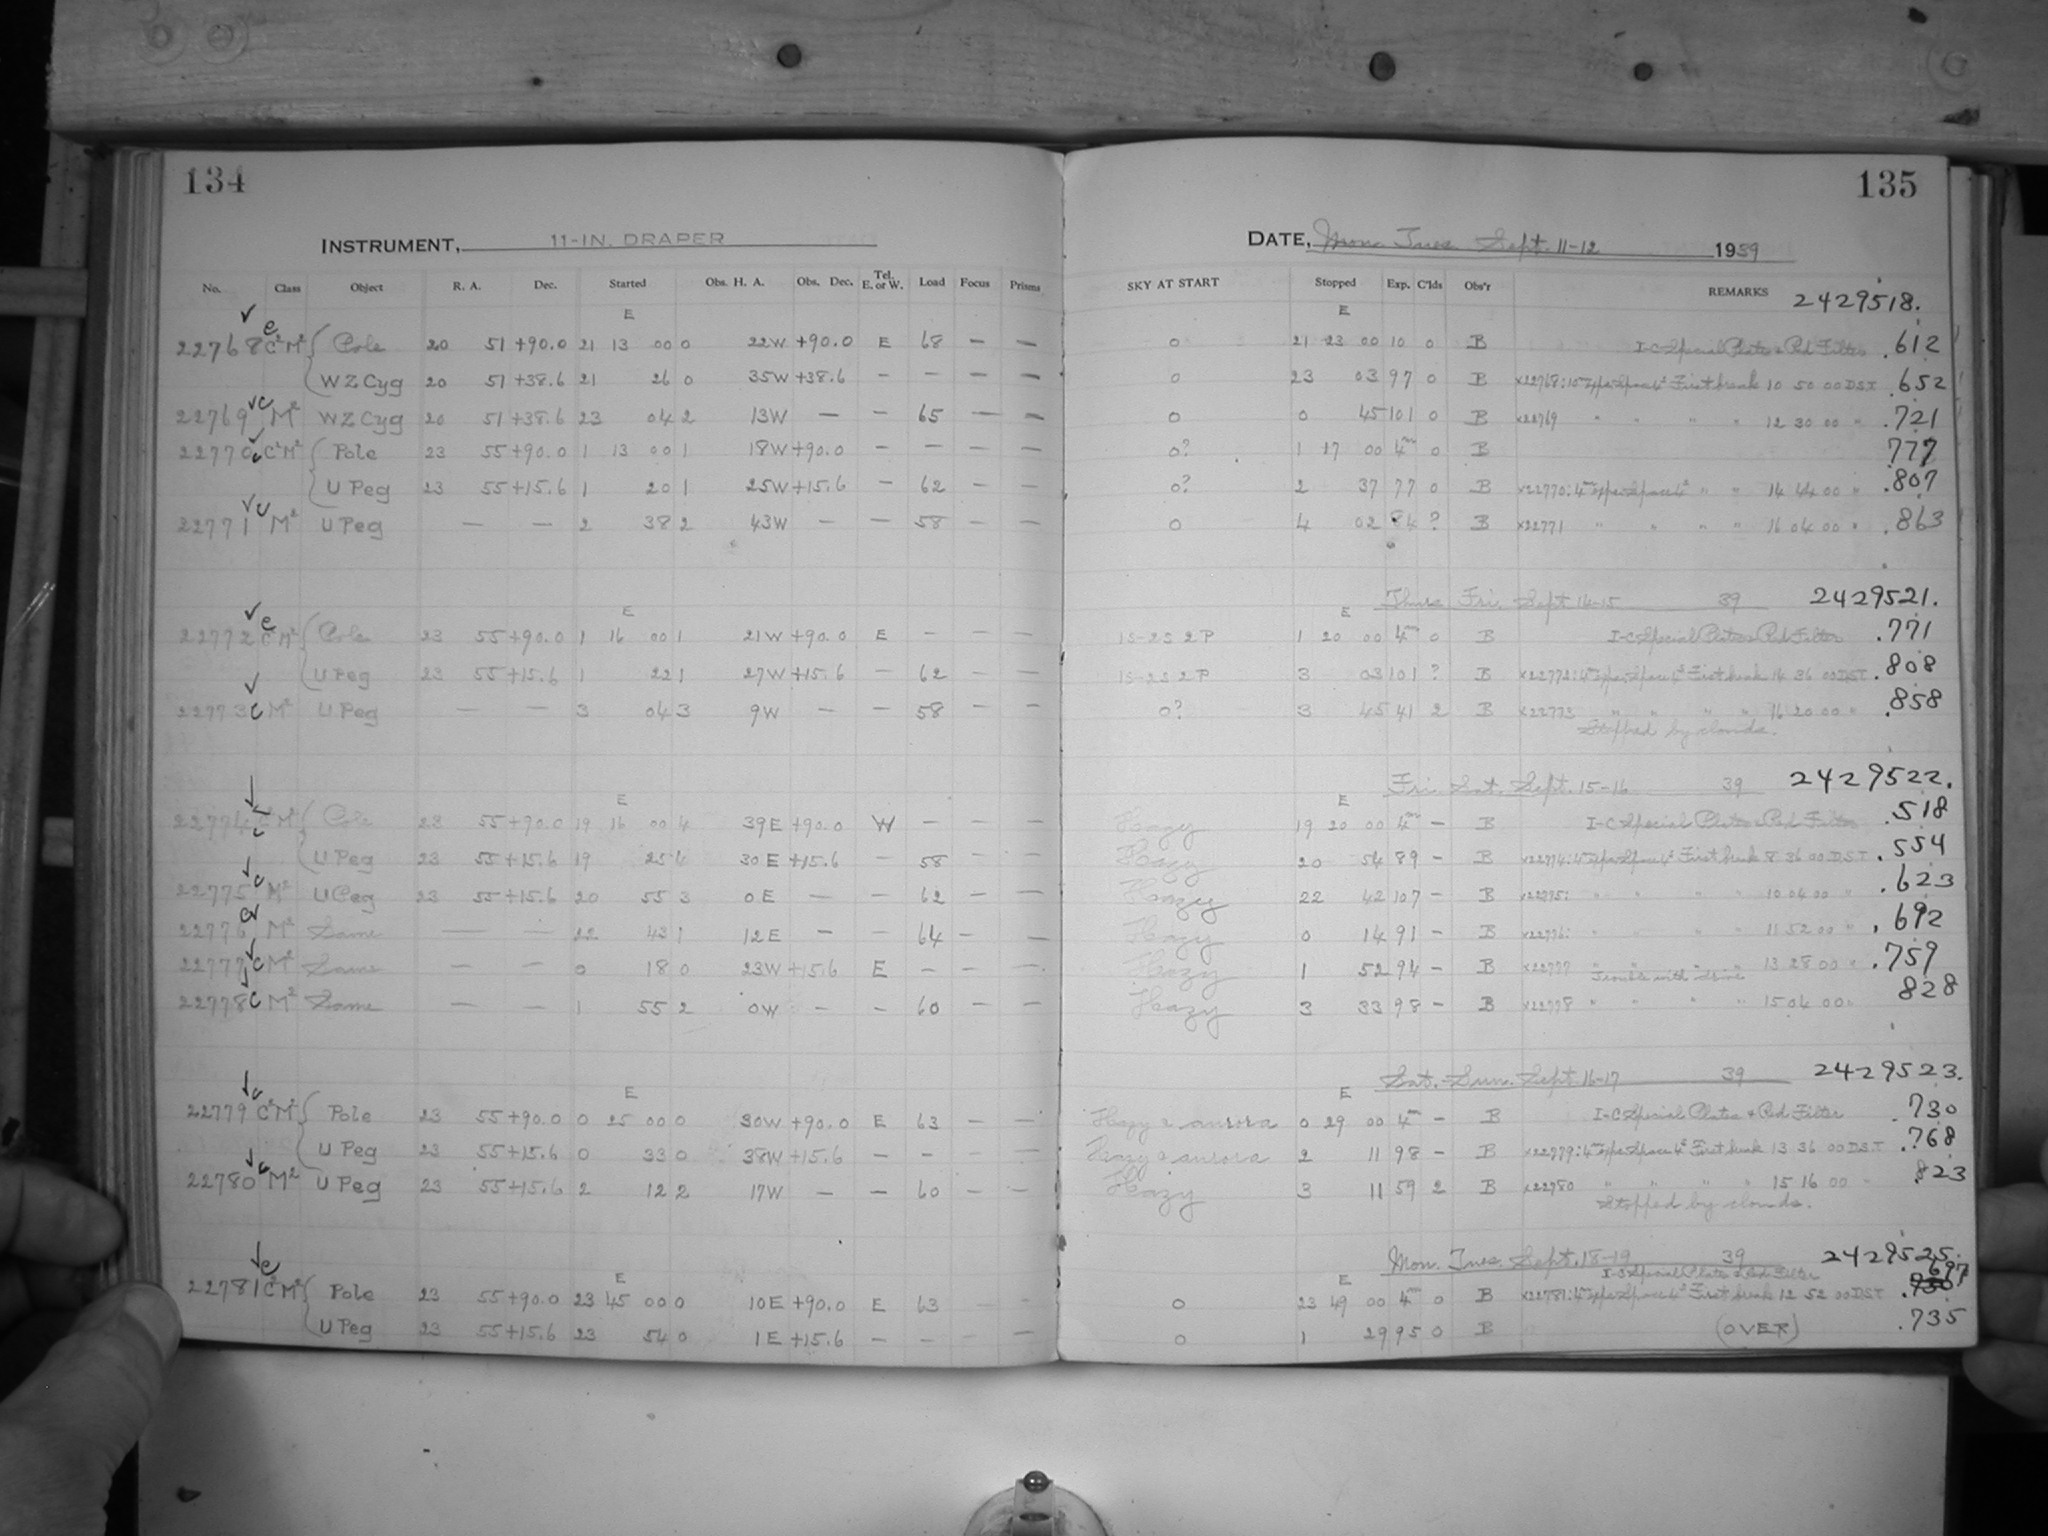 134
INSTRUMENT, 11-IN. DRAPER
No. Class Object R. A. Dec. Started Obs. H. A. Obs. Dec. Tel. E. or W. Load Focus Prisms
E
22768 C²M² Pole 20 51 +90.0 21 13 00 0 22W +90.0 E 68 — —
WZ Cyg 20 51 +38.6 21 26 0 35W +38.6 — — — —
22769 M² WZ Cyg 20 51 +38.6 23 04 2 13W — — 65 — —
22770 C²M² Pole 23 55 +90.0 1 13 00 1 18W +90.0 — — — —
U Peg 23 55 +15.6 1 20 1 25W +15.6 — 62 — —
22771 M² U Peg — — 2 38 2 43W — — 58 — —
E
22772 C²M² Pole 23 55 +90.0 1 16 00 1 21W +90.0 E — — —
U Peg 23 55 +15.6 1 22 1 27W +15.6 — 62 — —
22773 M² U Peg — — 3 04 3 9W — — 58 — —
E
22774 C²M² Pole 23 55 +90.0 19 16 00 4 39E +90.0 W — — —
U Peg 23 55 +15.6 19 25 4 30E +15.6 — 58 — —
22775 M² U Peg 23 55 +15.6 20 55 3 0E — — 62 — —
22776 M² Same — — 22 43 1 12E — — 64 — —
22777 M² Same — — 0 18 0 23W +15.6 E — — —
22778 M² Same — — 1 55 2 0W — — 60 — —
E
22779 C²M² Pole 23 55 +90.0 0 25 00 0 30W +90.0 E 63 — —
U Peg 23 55 +15.6 0 33 0 38W +15.6 — — — —
22780 M² U Peg 23 55 +15.6 2 12 2 17W — — 60 — —
E
22781 C²M² Pole 23 55 +90.0 23 45 00 0 10E +90.0 E 63 — —
U Peg 23 55 +15.6 23 54 0 1E +15.6 — — — —
135
DATE, Mon. Tues. Sept. 11-12 1939
SKY AT START Stopped Exp. C'lds Obs'r REMARKS 2429518.
E
0 21 23 00 10 0 B I-C Special Plates & Red Filter .612
0 23 03 97 0 B x22768: First break 10 50 00 DST .652
0 0 45 101 0 B x22769 " " " " 12 30 00 " .721
0? 1 17 00 4m 0 B .777
0? 2 37 77 0 B x22770: " " 14 44 00 " .807
0 4 02 84 ? B x22771 " " " " 16 04 00 " .863
Thurs Fri. Sept 14-15 39 2429521.
E
1S-2S 2P 1 20 00 4m 0 B I-C Special Plates & Red Filter .771
1S-2S 2P 3 03 101 ? B x22772: First break 14 36 00 DST .808
0? 3 45 41 2 B x22773 " " " " 16 20 00 " .858
Stopped by clouds.
Fri Sat. Sept. 15-16 39 2429522.
E
Hazy 19 20 00 4m — B I-C Special Plates & Red Filter .518
Hazy 20 54 89 — B x22774: First break 8 36 00 DST .554
Hazy 22 42 107 — B x22775: " " " " 10 04 00 " .623
Hazy 0 14 91 — B x22776: " " " " 11 52 00 " .692
Hazy 1 52 94 — B x22777 " " " " 13 28 00 " .759
Trouble with drive
Hazy 3 33 98 — B x22778 " " " " 15 04 00 " 828
Sat. - Sun. Sept 16-17 39 2429523.
E
Hazy & aurora 0 29 00 4m — B I-C Special Plates & Red Filter .730
Hazy & aurora 2 11 98 — B x22779: First break 13 36 00 DST .768
Hazy 3 11 59 2 B x22780 " " " " 15 16 00 " .823
Stopped by clouds.
Mon. Tues. Sept. 18-19 39 2429525.
E I-C Special Plates & Red Filter .697
0 23 49 00 4m 0 B x22781: First break 12 52 00 DST .730
0 1 29 95 0 B (OVER) .735